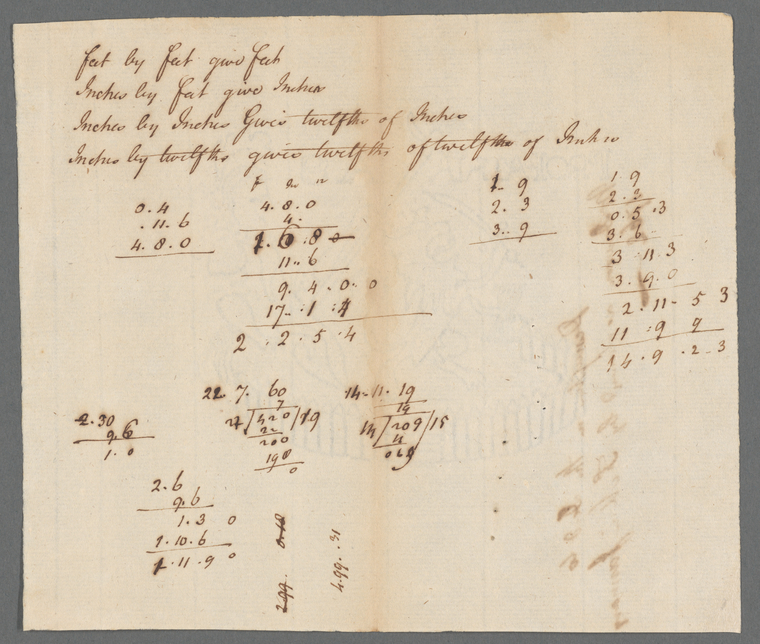 feet by feet give feet
Inches by feet give Inches
Inches by Inches Gives twelfths of Inches
Inches by twelfths gives twelfths of twelfths of Inches
0.4
.11.6
4.8.0
4.8.0
4.
8
11.6
9.4.0.0
17.1.4
2.2.5.4
1.9
2.3
3.9
1.9
2.3
0.5.3
3.6
3.11.3
3.9.0
2.11.5 3
11.9 9
14.9.2.3
2.30
9.6
1.0
22.7.60
7
420 19
22
200
198
14.11.19
19
14 209 15
2.6
9.6
1.3 0
1.10.6
1.11.9 0
299
4.99..31